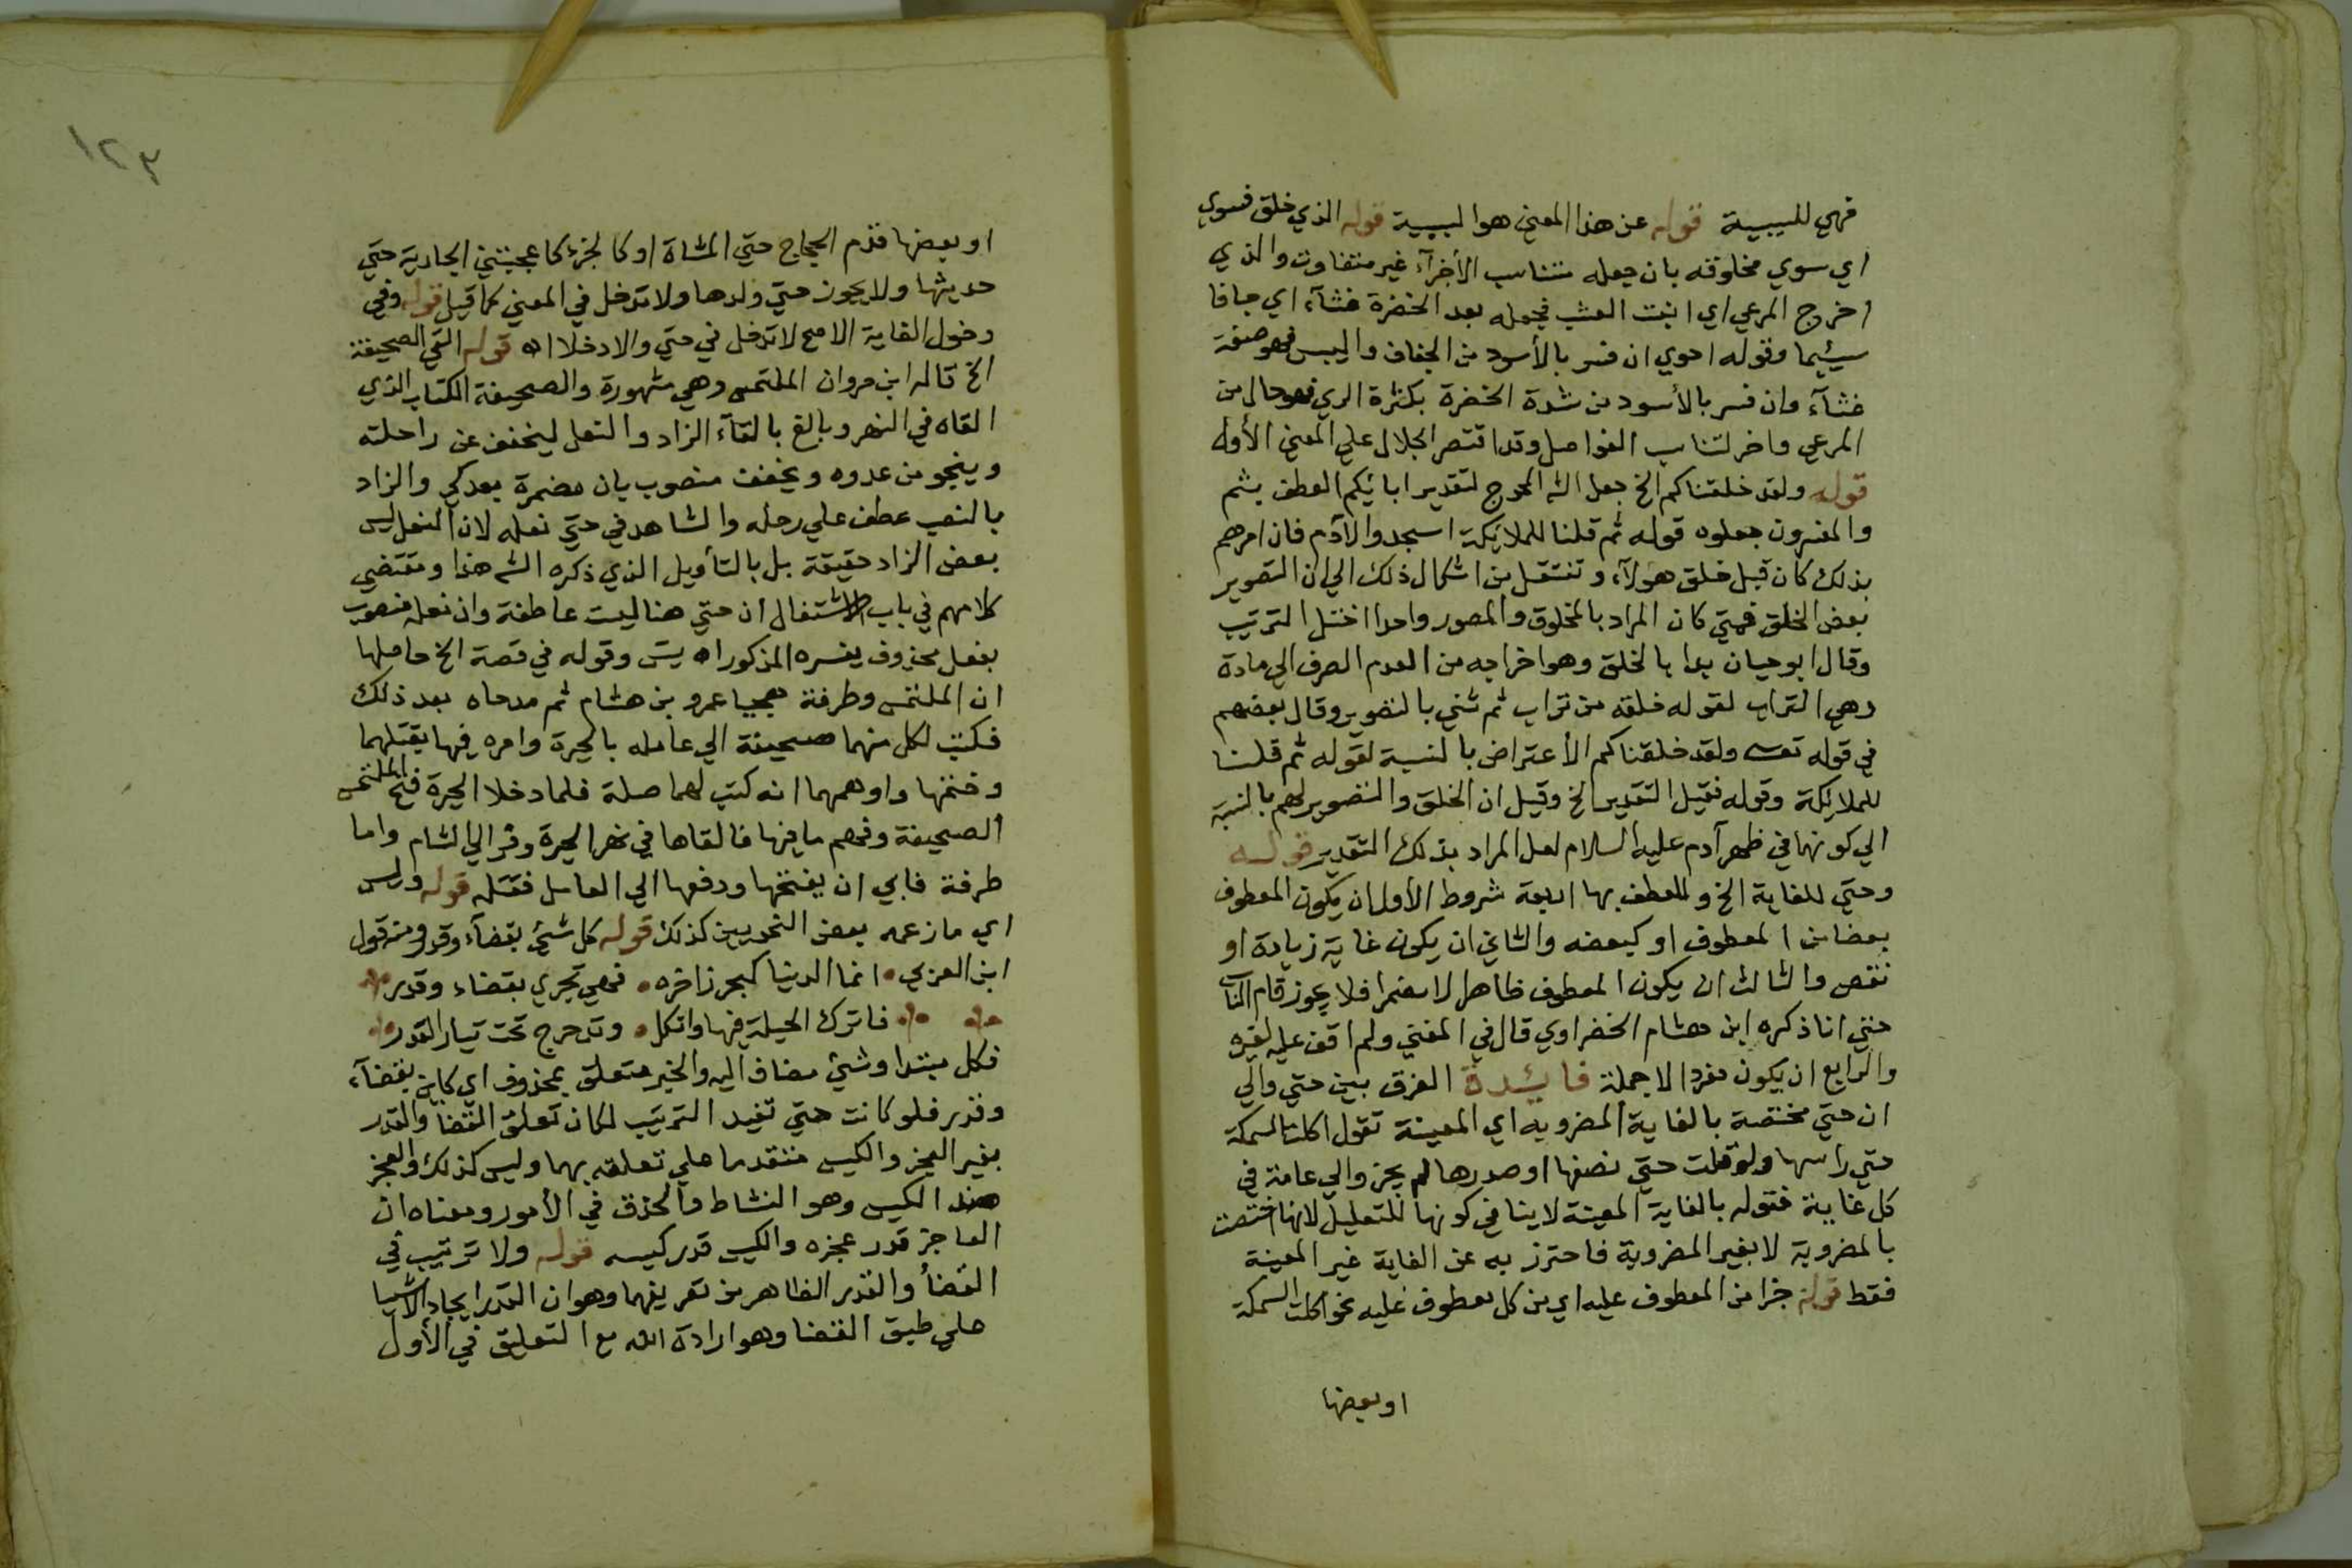 فهي للسببية قوله عن هذا المعنى هو السببية قوله الذي خلق فسوي
اي سوي مخلوقه بان جعله متناسب الأجزآء غير متفاوت والذي
اخرج المرعي اي انبت العشب فجعله بعد الخضرة غثآء اي جافا
هشيما وقوله احوي ان فسر بالأسود من الجفاف واليبس فهو صفة
غثآء وان فسر بالأسود من شدة الخضرة بكثرة الري فهو حال من
المرعي واخر لتناسب الفواصل وقد اقتصر الجلال علي المعنى الأول
قوله ولقد خلقناكم الخ جعل الش المحوج لتقدير ابائكم العطف بثم
والمفسرون جعلوه قوله ثم قلنا للملائكة اسجدوا لآدم فان امرهم
بذلك كان قبل خلق هؤلآء وتنتقل من اشكال ذلك الي ان التصوير
بعض الخلق فمتي كان المراد بالمخلوق والمصور واحدا اختل الترتيب
وقال ابو حيان بدا بالخلق وهو اخراجه من العدم الصرف الي مادة
وهي التراب لقوله خلقه من تراب ثم ثني بالتصوير وقال بعضهم
في قوله تعـ ولقد خلقناكم الأعتراض بالنسبة لقوله ثم قلنا
للملائكة وقوله فقيل التقدير الخ وقيل ان الخلق والتصوير لهم بالنسبة
الي كونهما في ظهر آدم عليه السلام لعل المراد بذلك التقدير قوله
وحتي للغاية الخ وللعطف بها اربعة شروط الأول ان يكون المعطوف
بعضا من المعطوف او كبعضه والثاني ان يكون غاية زيادة او
نقص والثالث ان يكون المعطوف ظاهرا لا مضمرا فلا يجوز قام الناس
حتي انا ذكره ابن هشام الخضراوي قال في المغني ولم اقف عليه لغيره
والرابع ان يكون مفردا لا جملة فائدة الفرق بين حتي والي
ان حتي مختصة بالغاية المضروبه اي المعينة تقول اكلت السمكة
حتي راسها ولو قلت حتي نصفها او صدرها لم يجز والي عامة في
كل غاية فقوله بالغاية المعينة لا ينافي كونها للتعليل لانها اختصت
بالمضروبة لا بغير المضروبة فاحترز به عن الغاية غير المعينة
فقط قوله جزا من المعطوف عليه اي من كل معطوف عليه نحو اكلت السمكة
او بعضها
١٢٣
او بعضها قدم الحجاج حتي المشاة او كالجزء كاعجبتني الجارية حتي
حديثها ولا يجوز حتي ولدها ولا تدخل في المعني كما قيل قوله وفي
دخول الغاية الاصح لا تدخل في حتي والا دخلا اه قوله القي الصحيفة
الخ قاله ابن مروان الملتمس وهي مشهورة والصحيفة الكتاب الذي
القاه في النهر وبالغ بالقآء الزاد والنعل ليخفف عن راحلته
وينجو من عدوه ويخفف منصوب بان مضمرة بعد كي والزاد
بالنصب عطف علي رحله والشاهد في حتي نعله لان النعل ليس
بعض الزاد حقيقة بل بالتأويل الذي ذكره الش هذا ومقتضي
كلامهم في باب الاشتغال ان حتي هنا ليست عاطفة وان نعله منصوب
بفعل محذوف يفسره المذكور اه يس وقوله في قصة الخ حاصلها
ان الملتمس وطرفة هجيا عمرو بن هشام ثم مدحاه بعد ذلك
فكتب لكل منهما صحيفة الي عامله بالحيرة وامره فيها بقتلهما
وختمها واوهمهما انه كتب لهما صلة فلما دخلا الحيرة فتح الملتمس
الصحيفة وفهم ما فيها فالقاها في نهر الحيرة وفر الي الشام واما
طرفة فابي ان يفتحها ودفعها الي العامل فقتله قوله وليس
اي ما زعمه بعض النحويين كذلك قوله كل شئ بقضآء وقدر ومنه قول
ابن العربي انما الدنيا كبحر زاخره فهي تجري بقضاء وقدر
فاترك الحيلة فيها واتكل وتدحرج تحت تيار القدر
فكل مبتدا وشئ مضاف اليه والخبر متعلق بمحذوف اي كاين بقضآء
وقدر فلو كانت حتي تفيد الترتيب لكان تعلق القضا والقدر
بغير العجز والكيس متقدما علي تعلقه بهما وليس كذلك والعجز
ضد الكيس وهو النشاط والحذق في الأمور ومعناه ان
العاجز قدر عجزه والكيس قدر كيسه قوله ولا ترتيب في
القضأ والقدر الظاهر من تعريفهما وهو ان القدر ايجاد الاشيا
علي طبق القضا وهو ارادة الله مع التعليق في الأول